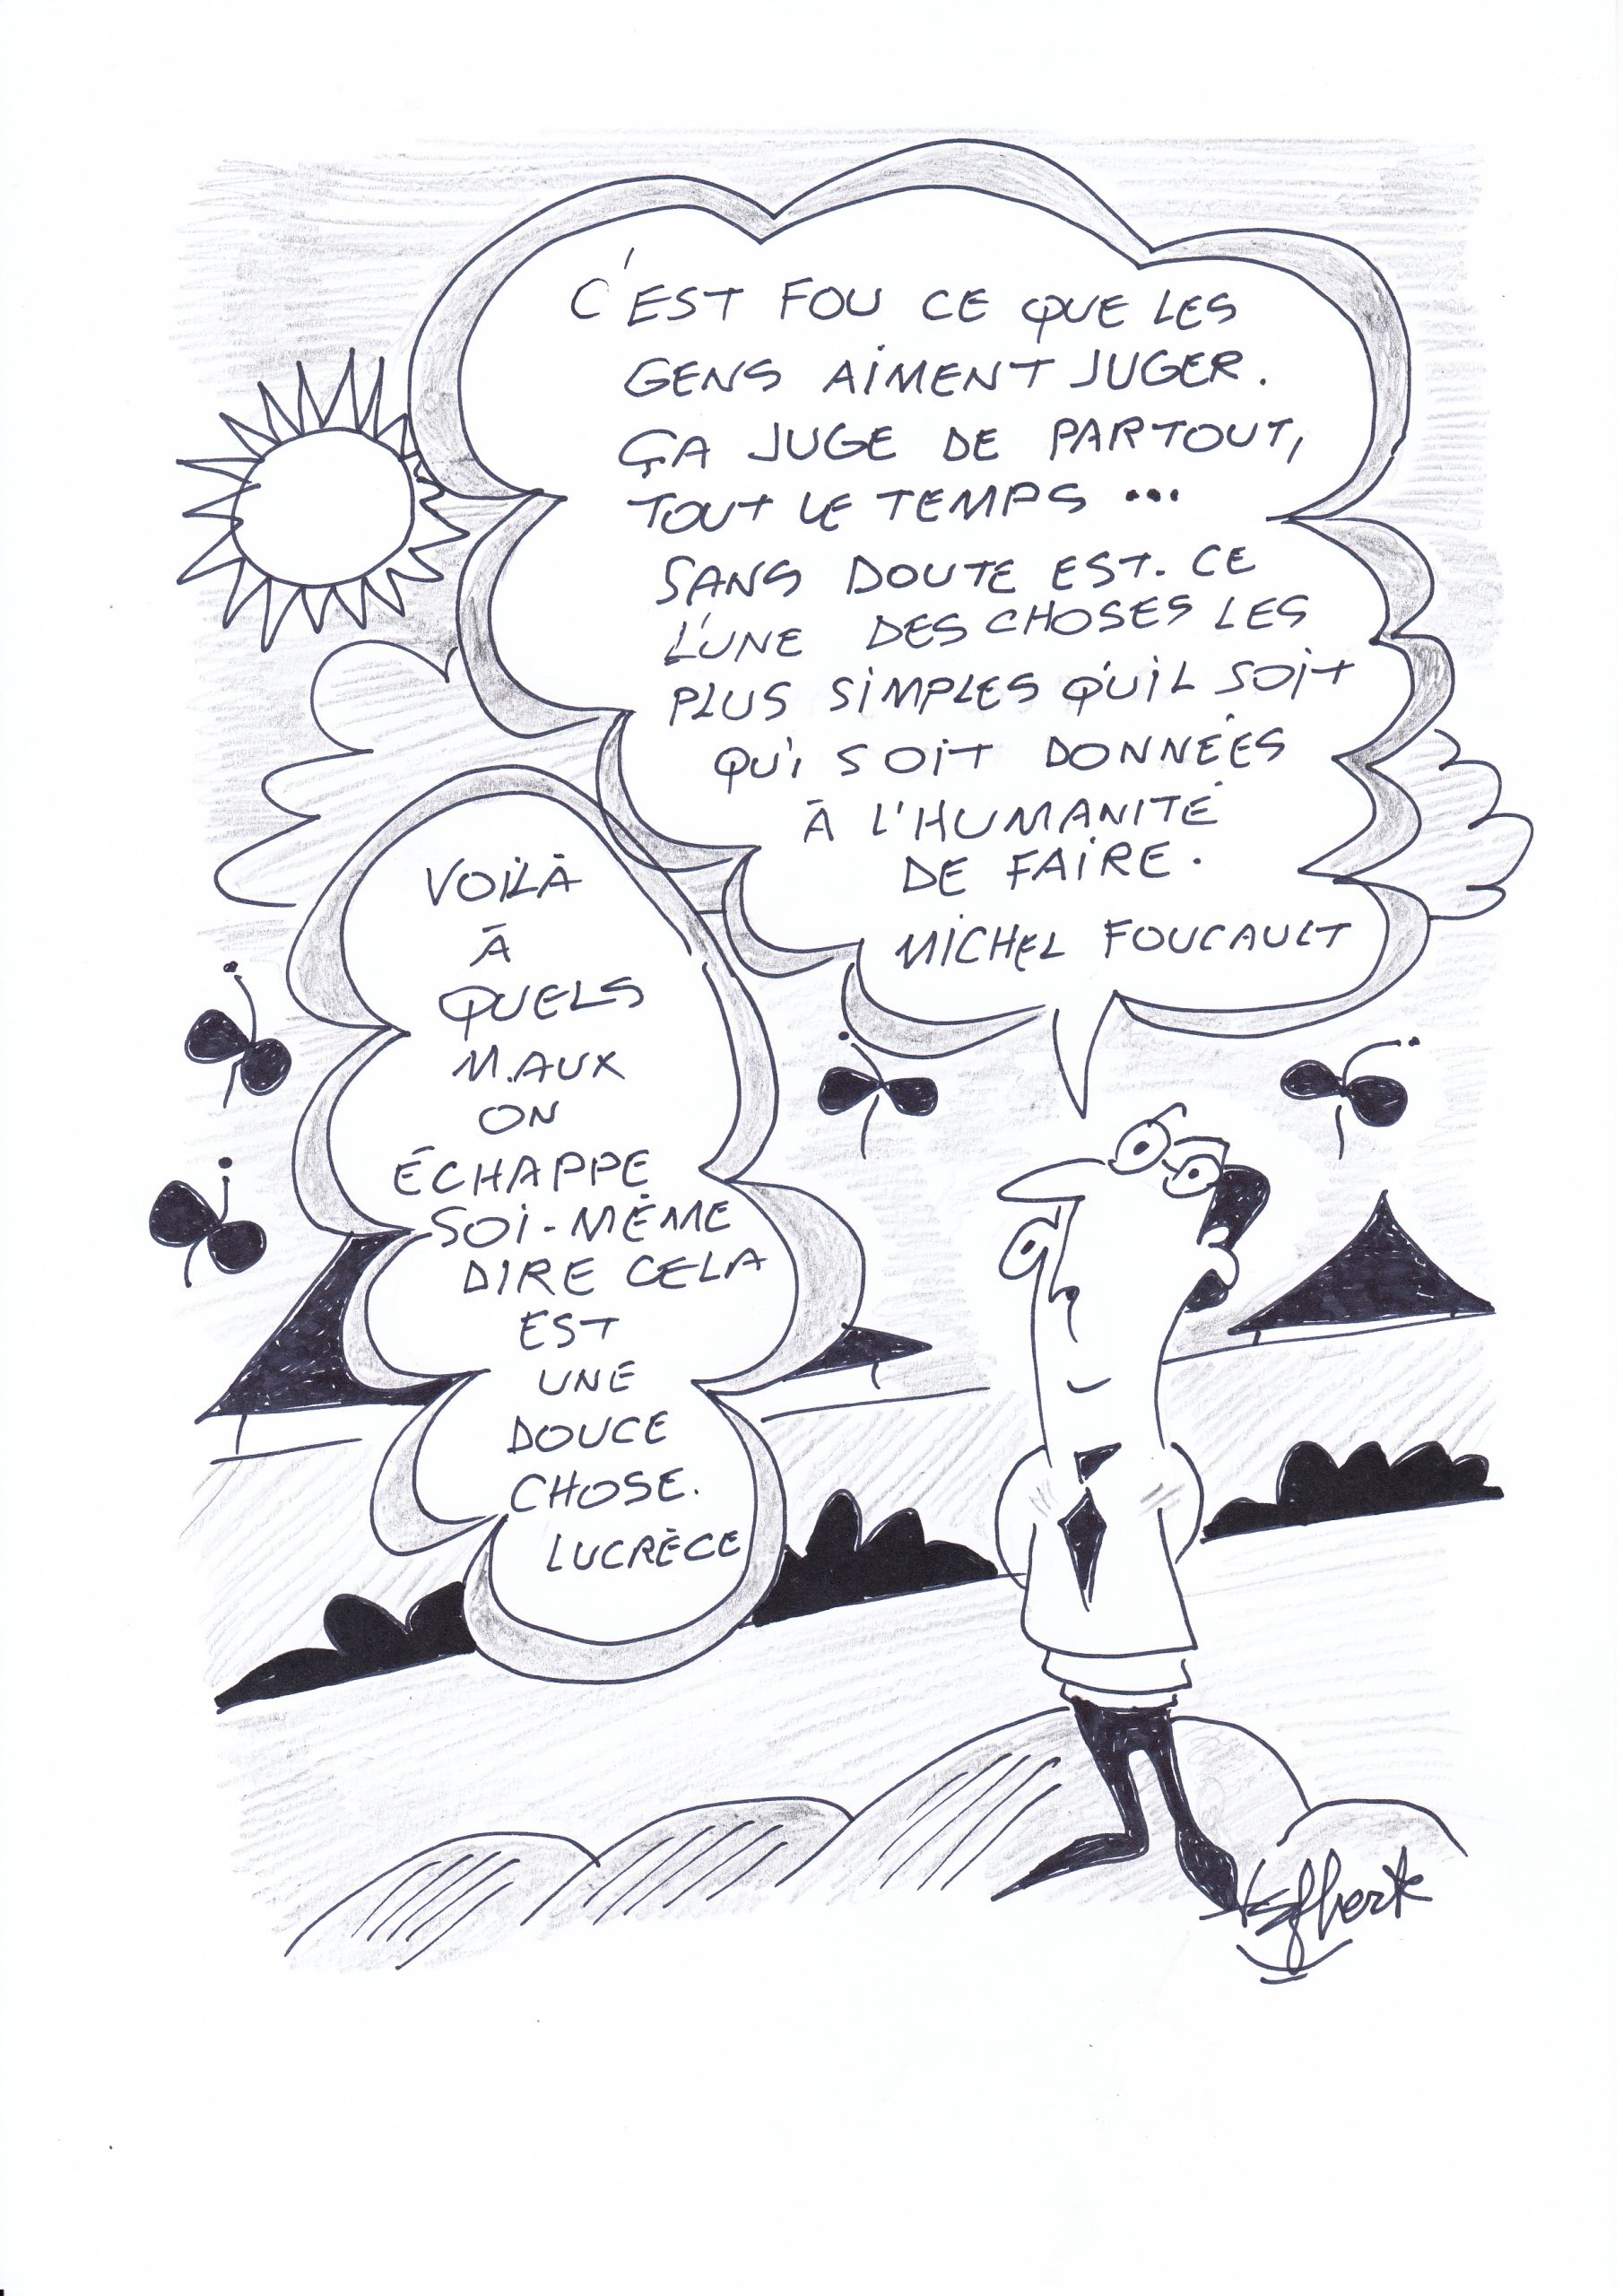 C'EST FOU CE QUE LES
GENS AIMENT JUGER.
ÇA JUGE DE PARTOUT,
TOUT LE TEMPS...
SANS DOUTE EST-CE
L'UNE DES CHOSES LES
PLUS SIMPLES QU'IL SOIT
QUI SOIT DONNÉES
À L'HUMANITÉ
DE FAIRE.
MICHEL FOUCAULT
VOILÀ
À
QUELS
MAUX
ON
ÉCHAPPE
SOI-MÊME
DIRE CELA
EST
UNE
DOUCE
CHOSE.
LUCRÈCE